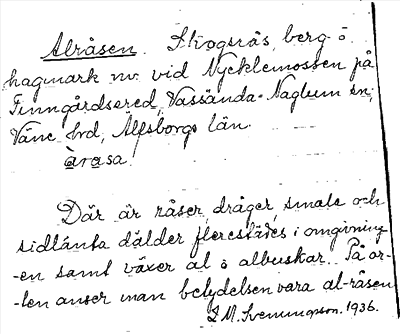 Alråsen. Skogsås, berg o.
hagmark nv. vid Nycklemossen på
Finngårdsered, Vassända-Naglum sn,
Väne hrd, Älfsborgs län.
àrasa
Där är råser, dråger, smala och
sidlänta dälder flerestädes i omgivning
-en samt växer al o albuskar. På or-
-ten anser man betydelsen vara al-råsen
S. M. Svenungson. 1936.